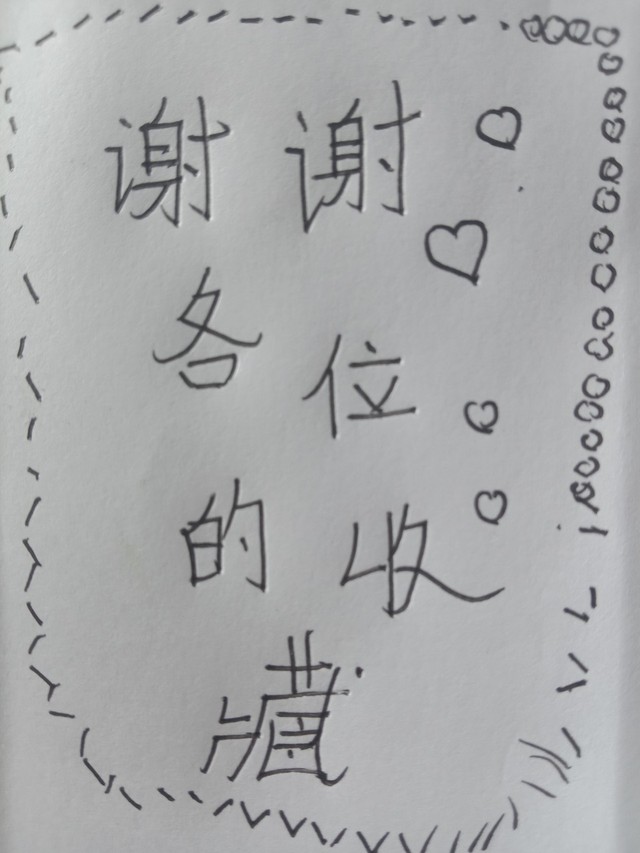 谢谢
各位
的收
藏